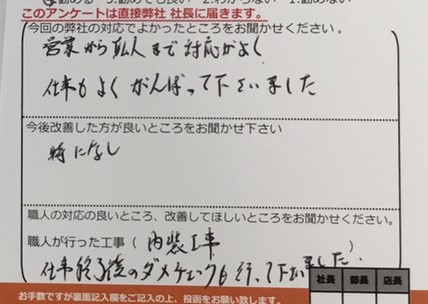 勧める 3.勧めても良い 2.わからない 1.勧めない
このアンケートは直接弊社 社長に届きます。
今回の弊社の対応でよかったところをお聞かせ下さい
営業から職人まで対応がよく
仕事もよくがんばって下さいました
今後改善した方が良いところをお聞かせ下さい
特になし
職人の対応の良いところ、改善してほしいところをお聞かせください。
職人が行った工事(内装工事)
仕事終了後のダメチェックも行って下さいました
社長 部長 店長
お手数ですが裏面記入欄をご記入の上、投函をお願い致します。